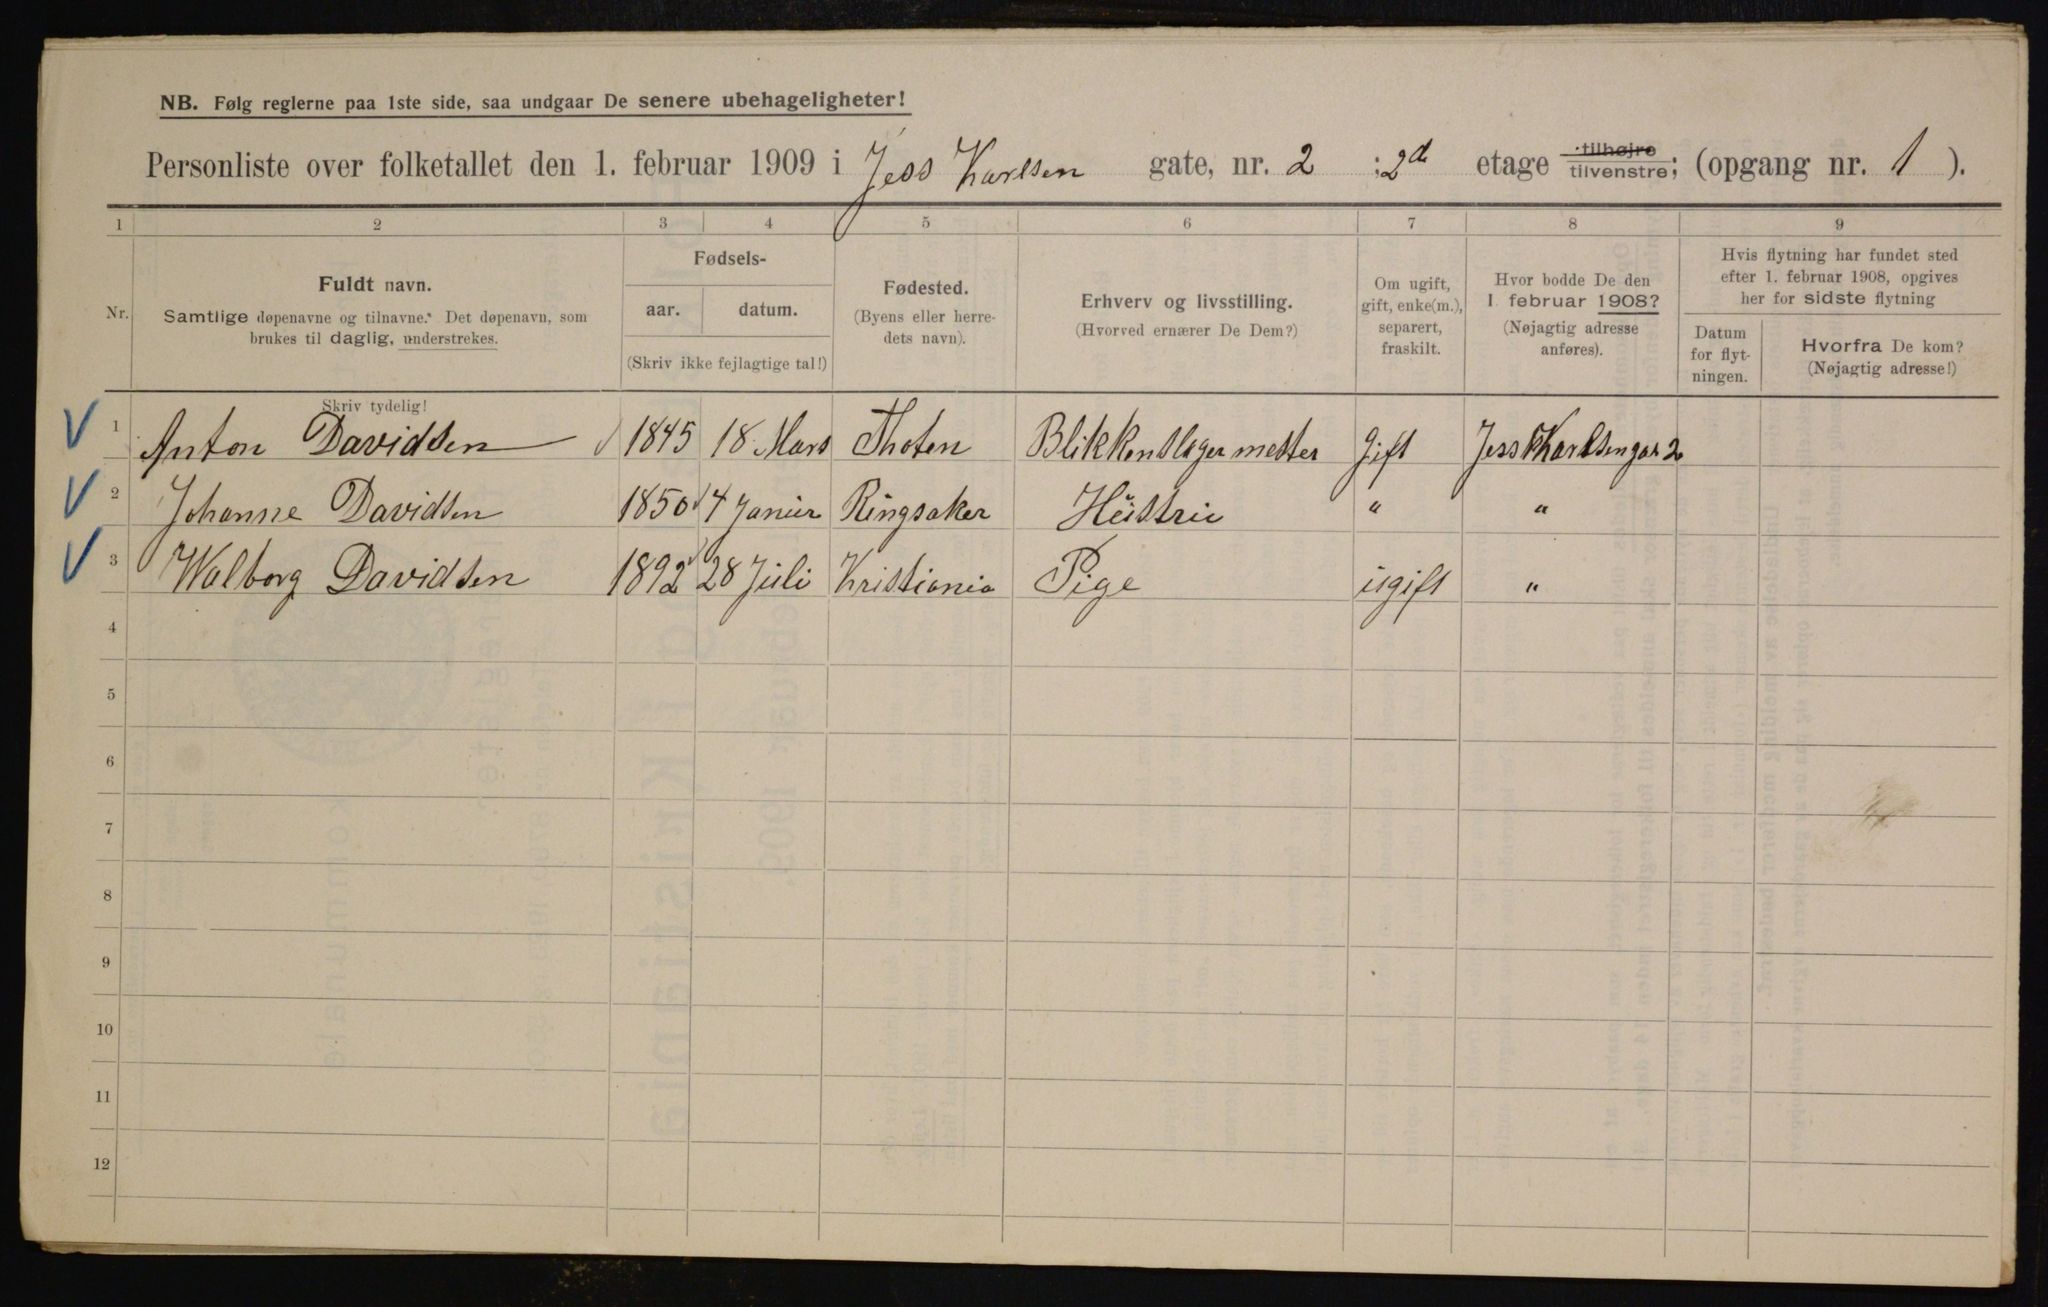 NB. Følg reglerne paa 1ste side, saa undgaar De senere ubehageligheter!
Personliste over folketallet den 1. februar 1909 i Jess Karlsen gate, nr. 2 ; 2d etage tilhøjre tilvenstre; (opgang nr. 1 ).
1 2 3 4 5 6 7 8 9
Nr.
Fuldt navn.
Samtlige døpenavne og tilnavne. Det døpenavn, som
brukes til daglig, understrekes.
Skriv tydelig!
Fødsels-
aar. datum.
(Skriv ikke fejlagtige tal!)
Fødested.
(Byens eller herre-
dets navn).
Erhverv og livsstilling.
(Hvorved ernærer De Dem?)
Om ugift,
gift, enke(m.),
separert,
fraskilt.
Hvor bodde De den
1. februar 1908?
(Nøjagtig adresse
anføres).
Hvis flytning har fundet sted
efter 1. februar 1908, opgives
her for sidste flytning
Datum
for flyt-
ningen.
Hvorfra De kom?
(Nøjagtig adresse!)
1 Anton Davidsen 1845 18 Mars Thoten Blikkenslager mester Gift Jess Karlsengar 2
2 Johanne Davidsen 1850 4 Januir Ringsaker Hüstrie " "
3 Walborg Davidsen 1892 28 Juli Kristiania Pige ugift "
4
5
6
7
8
9
10
11
12